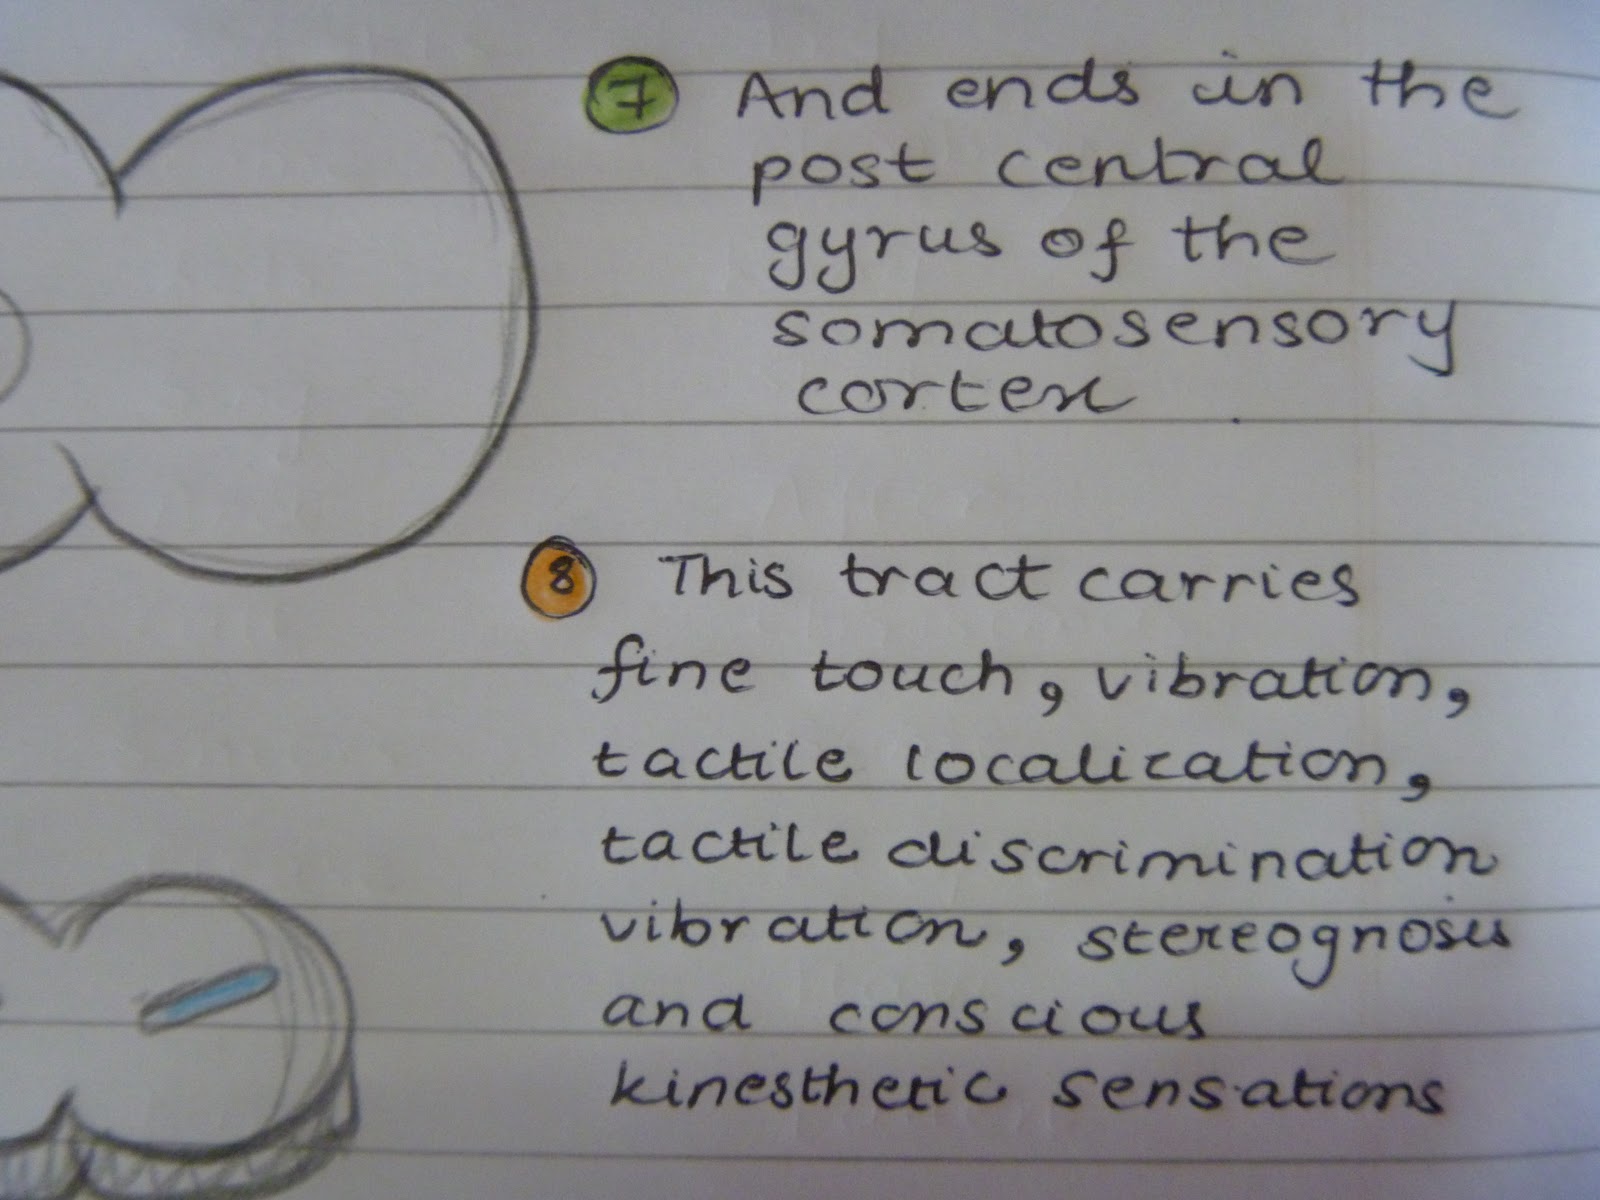 7 And ends in the
post central
gyrus of the
somatosensory
cortex
8 This tract carries
fine touch, vibration,
tactile localization,
tactile discrimination
vibration, stereognosis
and conscious
kinesthetic sensations